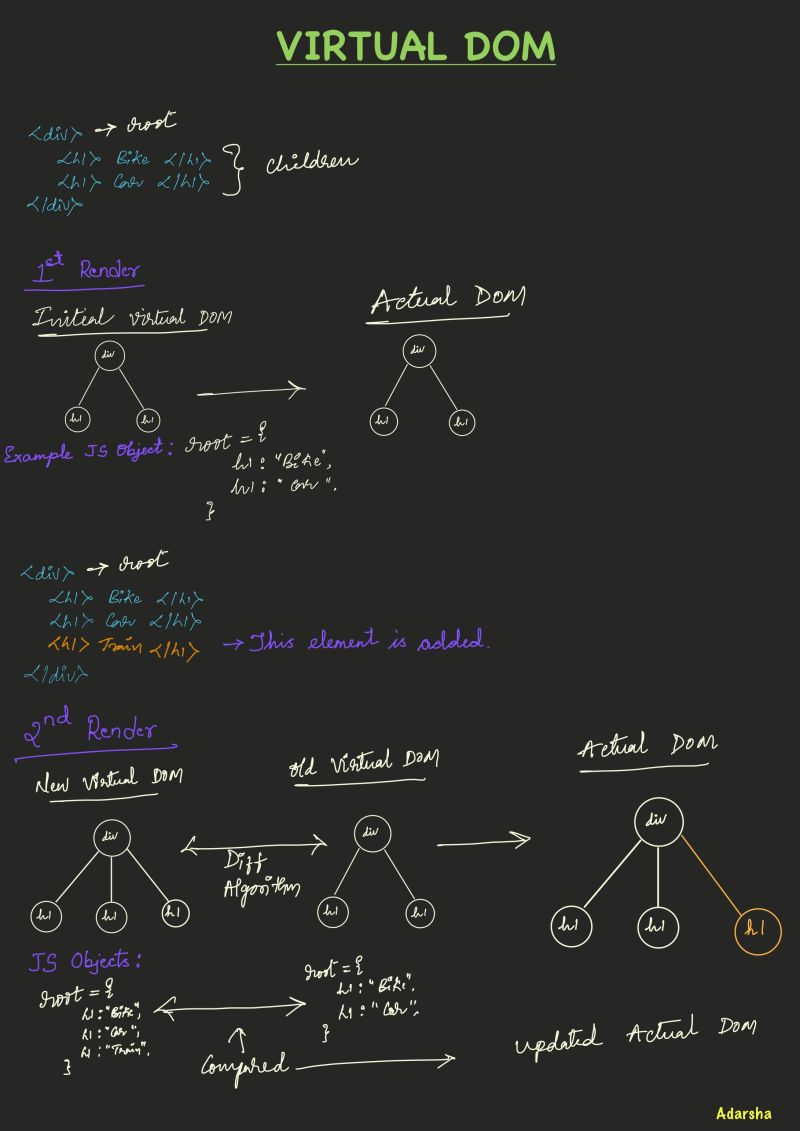 VIRTUAL DOM
<div> → root
<h1> Bike </h1>
<h1> Car </h1>
</div>
} children
1st Render
Initial Virtual DOM
Actual DOM
div
h1 h1
div
h1 h1
Example JS Object:
root = {
h1 : "Bike",
h1 : "Car",
}
<div> → root
<h1> Bike </h1>
<h1> Car </h1>
<h1> Train </h1> → This element is added.
</div>
2nd Render
New Virtual DOM
Old Virtual DOM
Actual DOM
div
h1 h1 h1
Diff
Algorithm
div
h1 h1
div
h1 h1 h1
JS Objects:
root = {
h1 : "Bike",
h1 : "Car",
h1 : "Train",
}
root = {
h1 : "Bike",
h1 : "Car",
}
Compared
updated Actual DOM
Adarsha